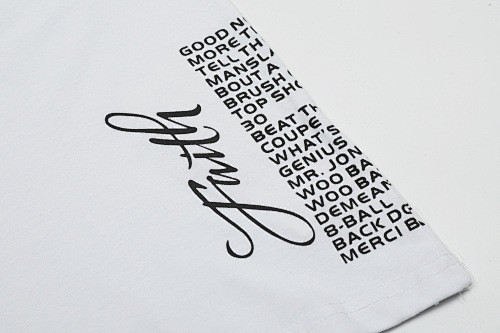 GOOD N
MORE T
TELL TH
MANSLA
BOUT A
BRUSH
TOP SHO
30
BEAT TH
COUPE
WHAT'S
GENIUS
MR. JON
WOO BA
WOO BA
DEMEAN
8-BALL
BACK DO
MERCI B
Faith